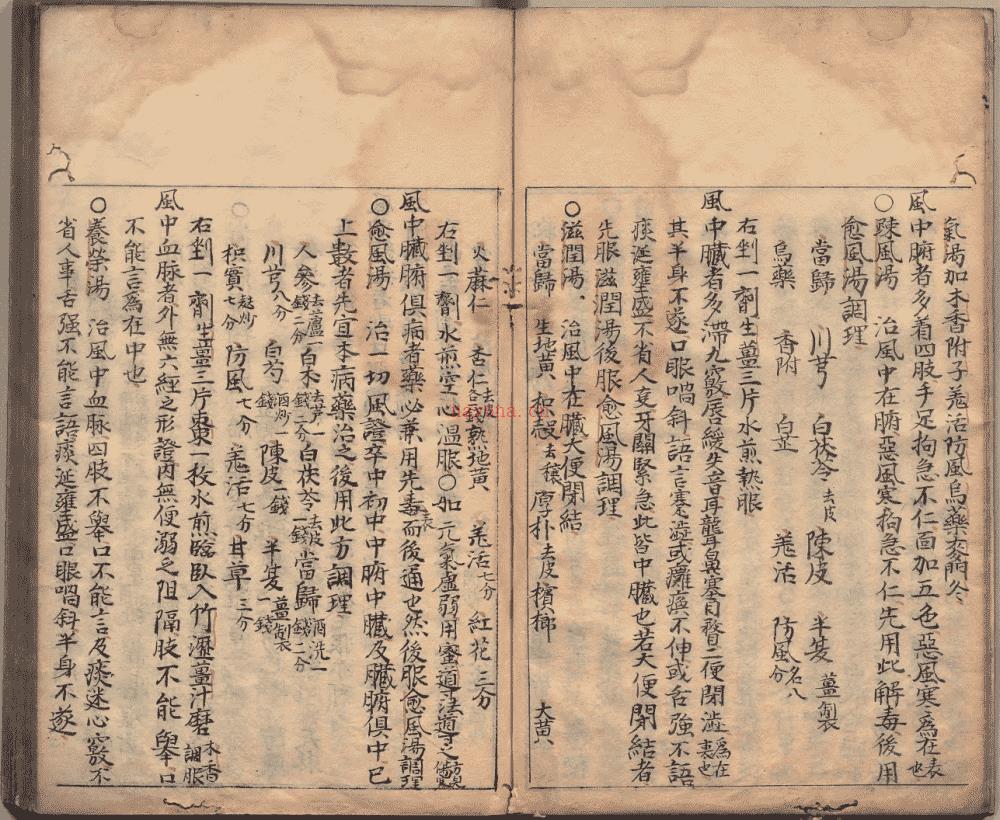 氣湯加木香附子羗活防風烏藥麥門冬
風中腑者多着四肢手足拘急不仁面加五色惡風寒為在表也
○疎風湯 治風中在腑惡風寒拘急不仁先用此解毒後用
愈風湯調理
當歸 川芎 白茯苓去皮 陳皮 半夏薑製
烏藥 香附 白芷 羗活 防風各八分
右剉一劑生薑三片水煎熱服
風中臟者多滯九竅唇緩失音耳聾鼻塞目瞀二便閉澁為在裏也
其半身不遂口眼喎斜語言蹇澁或癱瘓不伸或舌強不語
痰涎壅盛不省人𠅤牙關緊急此皆中臟也若大便閉結者
先服滋潤湯後服愈風湯調理
○滋潤湯 治風中在臟大便閉結
當歸 生地黄 枳殼去穰 厚朴去皮 檳榔 大黄
火麻仁 杏仁去 熟地黄 羗活七分 紅花三分
右剉一劑水煎空心溫服○如元氣虛弱用蜜道寸法導之方見
風中臟腑俱病者藥必兼用先表而後通也然後服愈風湯調理
○愈風湯 治一切風證卒中初中中腑中臟及臟腑俱中已
上數者先宜本病藥治之後用此方調理
人參去蘆一錢二分 白朮去芦一錢二分 白茯苓去皮一錢 當歸酒洗一錢二分
川芎八分 白芍酒炒一錢 陳皮一錢 半夏薑製一錢
枳實麩炒七分 防風七分 羗活七分 甘草三分
右剉一劑生薑三片棗一枚水煎臨臥入竹瀝薑汁磨木香調服
風中血脉者外無六經之形證內無便溺之阻隔肢不能舉口
不能言為在中也
○養榮湯 治風中血脉四肢不舉口不能言及痰迷心竅不
省人事舌强不能言語痰涎壅盛口眼喎斜半身不遂